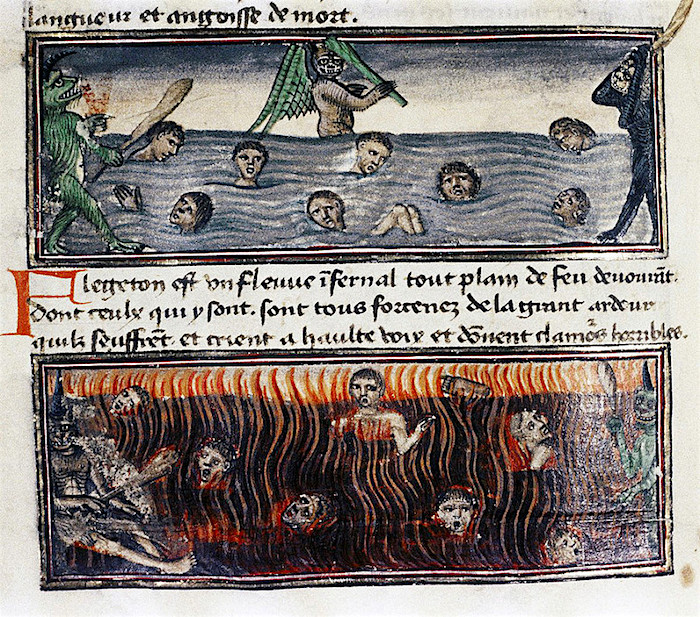 langueur et angoisse de mort.
Flegeton est vn fleuue ĩfernal tout plain de feu deuourãt.
Dont ceulx qui y sont. sont tous forcenez de la grant ardeur
quilz seuffrẽt. et crient a haulte voix et dõnent clameˢ horribles.